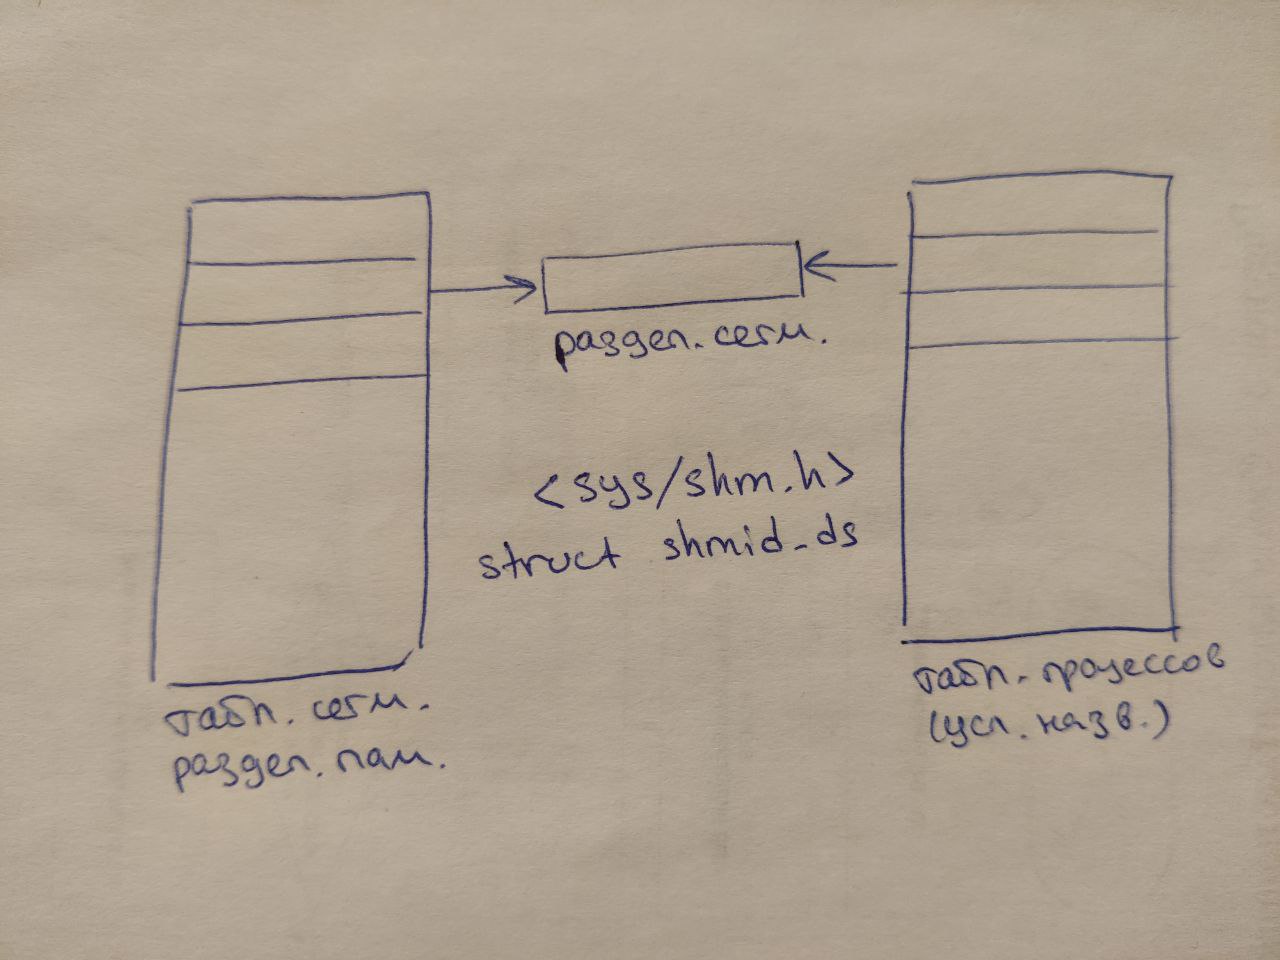 раздел. сегм.
<sys/shm.h>
struct shmid_ds
табл. сегм.
раздел. пам.
табл. процессов
(усл. назв.)